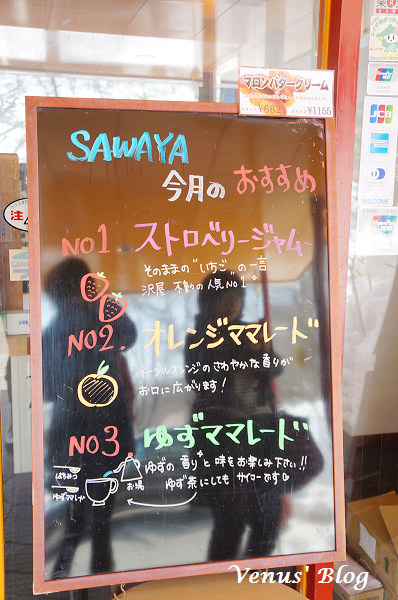 マロンバタークリーム
¥662
¥1155
SAWAYA
今月の おすすめ
NO1 ストロベリージャム
そのままの"いちご"の一言
沢屋 不動の人気NO1
NO2. オレンジママレード
オレンジのさわやかな香りが
お口に広がります!
NO3 ゆずママレード
ゆずの香りと味をお楽しみ下さい!!
ゆず茶にしても サイコーです
はちみつ
お湯
ゆずママレード
注
JCB
WELCOME
Venus' Blog